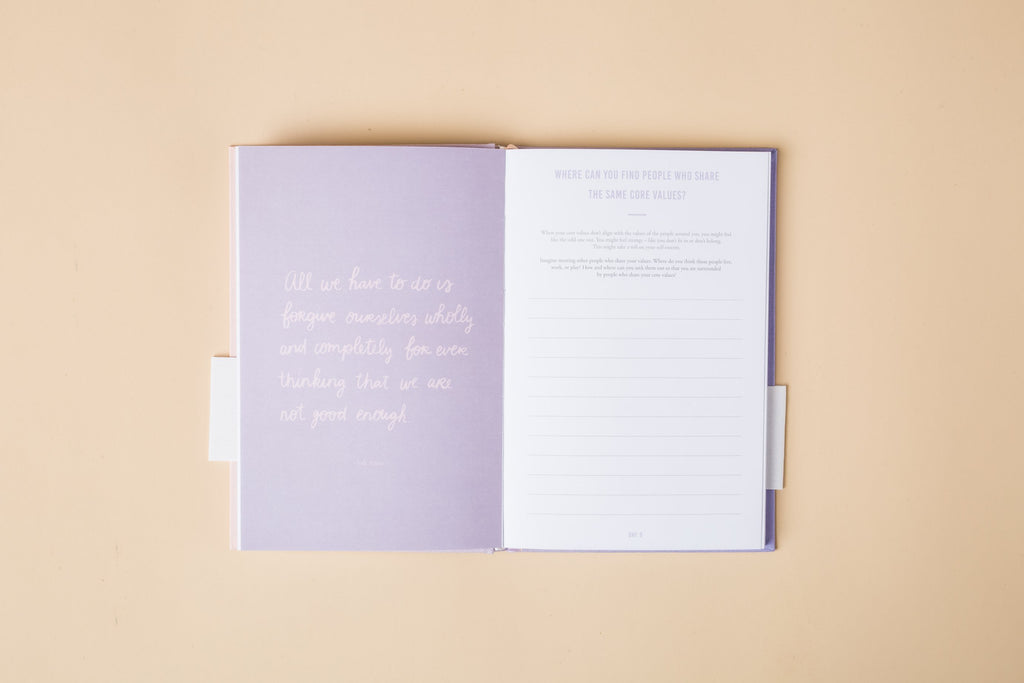 All we have to do is
forgive ourselves wholly
and completely for ever
thinking that we are
not good enough.
WHERE CAN YOU FIND PEOPLE WHO SHARE
THE SAME CORE VALUES?
When your core values don't align with the values of the people around you, you might feel
like the odd one out. You might feel strange – like you don't fit in or don't belong.
This might take a toll on your self-esteem.
Imagine meeting other people who share your values. Where do you think these people live,
work, or play? How and where can you seek them out so that you are surrounded
by people who share your core values?
DAY